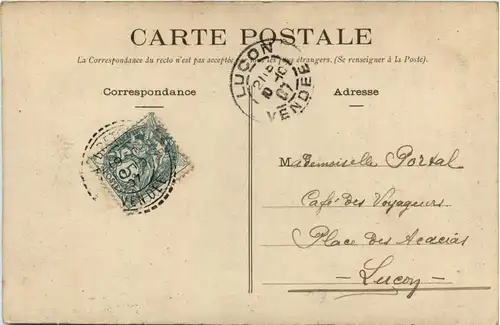 CARTE POSTALE
La Correspondance du recto n'est pas acceptée par tous les pays étrangers. (Se renseigner à la Poste).
LUÇON
VENDÉE
Correspondance
Adresse
Mademoiselle Portal
Café des Voyageurs
Place des Acacias
- Luçon -
VENDÉE